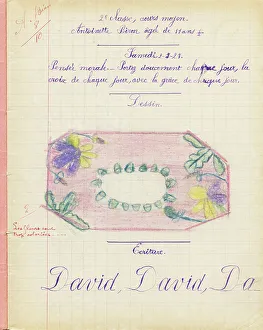 2e classe, cours moyen
Antoinette âgée de 11 ans ½
Samedi 2-2-29.
Pensée morale - Portez doucement chaque jour, la
croix de chaque jour, avec la grâce de chaque jour.
Dessin
Les fleurs sont
trop colorées
Ecriture.
David, David, Da